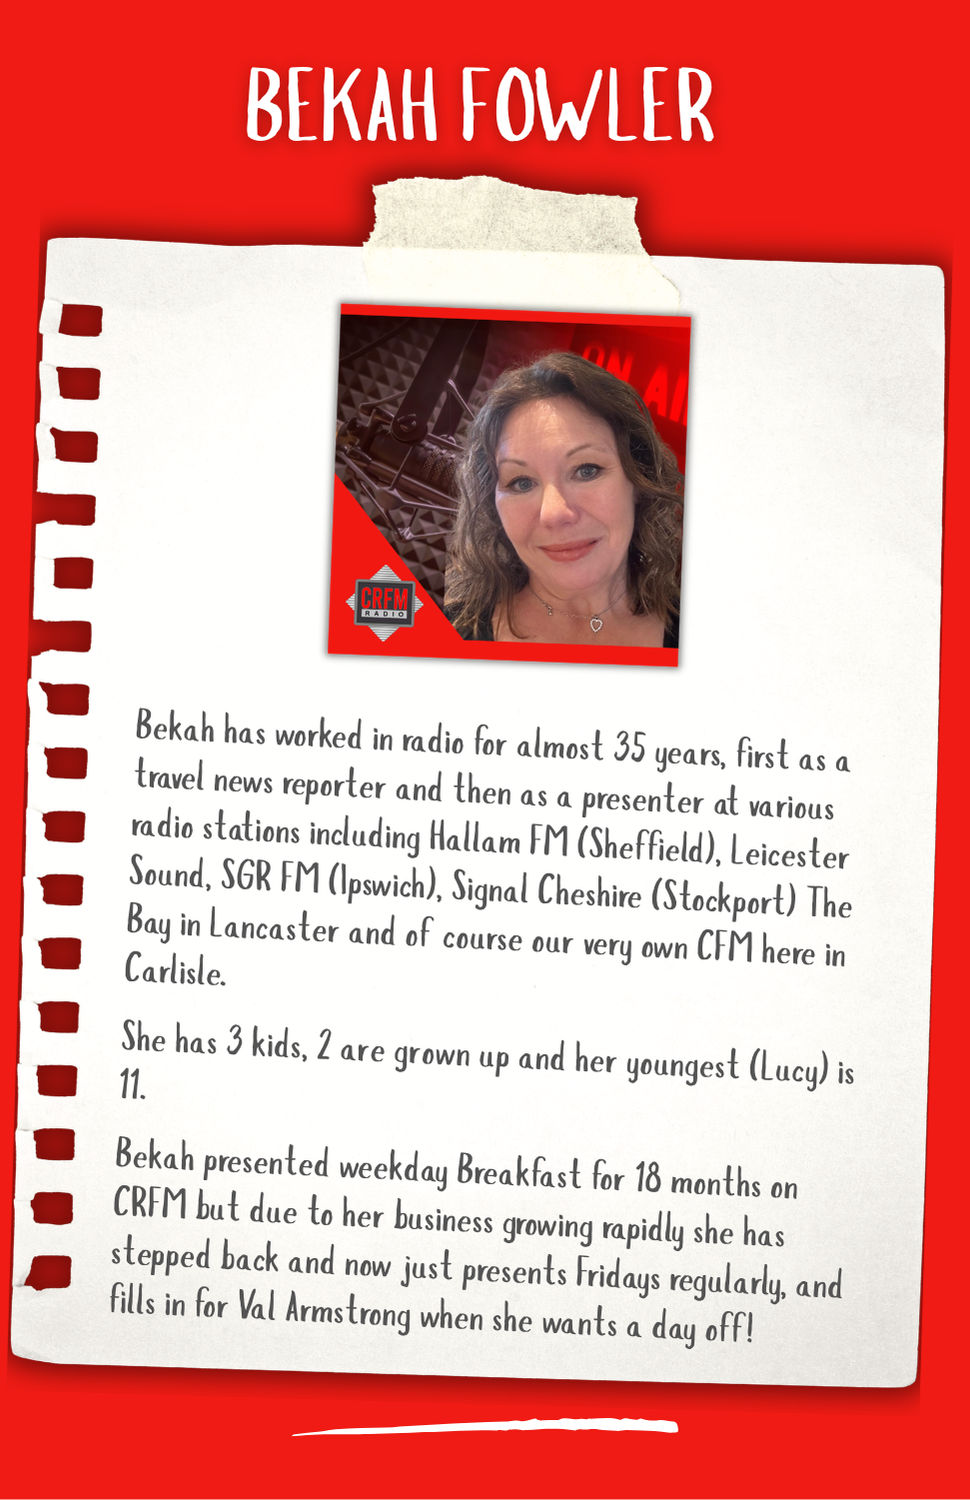 BEKAH FOWLER
ON AI
CRFM
RADIO
Bekah has worked in radio for almost 35 years, first as a
travel news reporter and then as a presenter at various
radio stations including Hallam FM (Sheffield), Leicester
Sound, SGR FM (Ipswich), Signal Cheshire (Stockport) The
Bay in Lancaster and of course our very own CFM here in
Carlisle.
She has 3 kids, 2 are grown up and her youngest (Lucy) is
11.
Bekah presented weekday Breakfast for 18 months on
CRFM but due to her business growing rapidly she has
stepped back and now just presents Fridays regularly, and
fills in for Val Armstrong when she wants a day off!